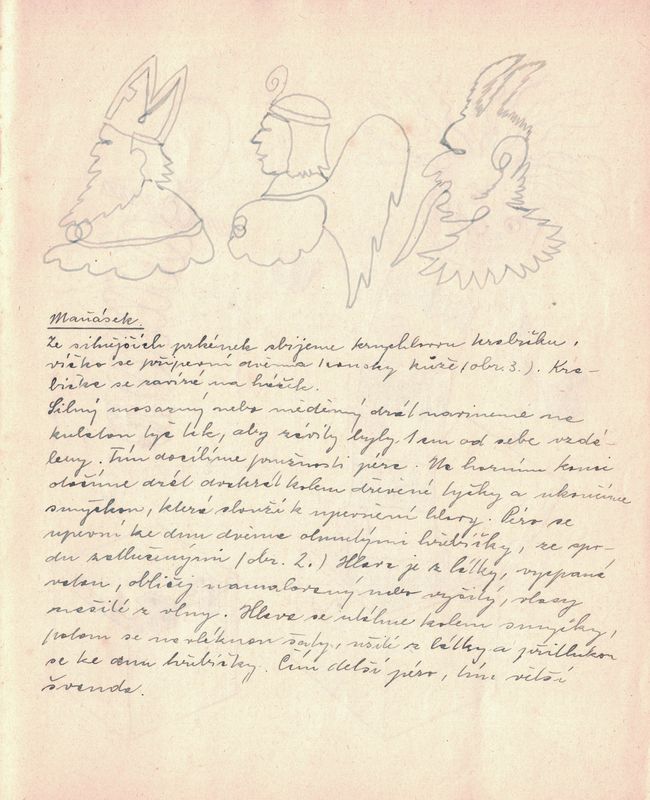 Maňásek.
Ze silnějších prkének sbijeme krychlovou krabičku,
víčko se připevní dvěma kousky kůže (obr. 3.). Kra-
bička se zavírá na háček.
Silný mosazný nebo měděný drát navineme na
kulatou tyč tak, aby závity byly 1 cm od sebe vzdá-
leny. Tím docílíme pružnosti péra. Na horním konci
otočíme drát dvakrát kolem dřevěné tyčky a ukončíme
smyčkou, která slouží k upevnění hlavy. Péro se
upevní ke dnu dvěma ohnutými hřebíčky, ze spo-
du zatlučenými (obr. 2.) Hlava je z látky, vycpaná
vatou, obličej namalovaný nebo vyšitý, vlasy
našité z vlny. Hlava se utáhne kolem smyčky,
potom se navléknou šaty, ušité z látky a přitlukou
se ke dnu hřebíčky. Čím delší péro, tím větší
švanda.